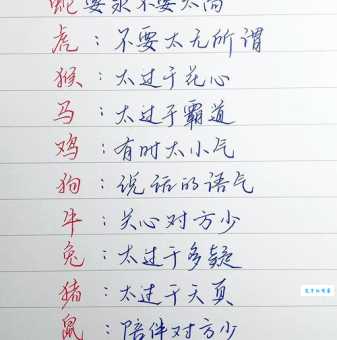 蛇要求不要太高
虎：不要太无所谓
猴：太过于花心
马：太过于霸道
鸡：有时太小气
狗：说话的语气
牛：关心对方少
兔：太过于多疑
猪：太过于天真
鼠：陪伴对方少